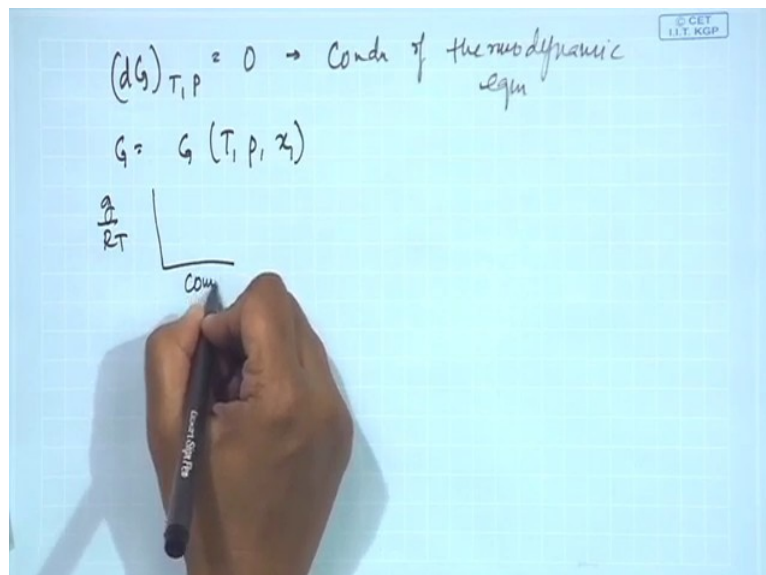 © CET
I.I.T. KGP
(dG)T,P = 0 → Condn of thermodynamic
eqm
G = G (T, P, x1)
g/RT
Com